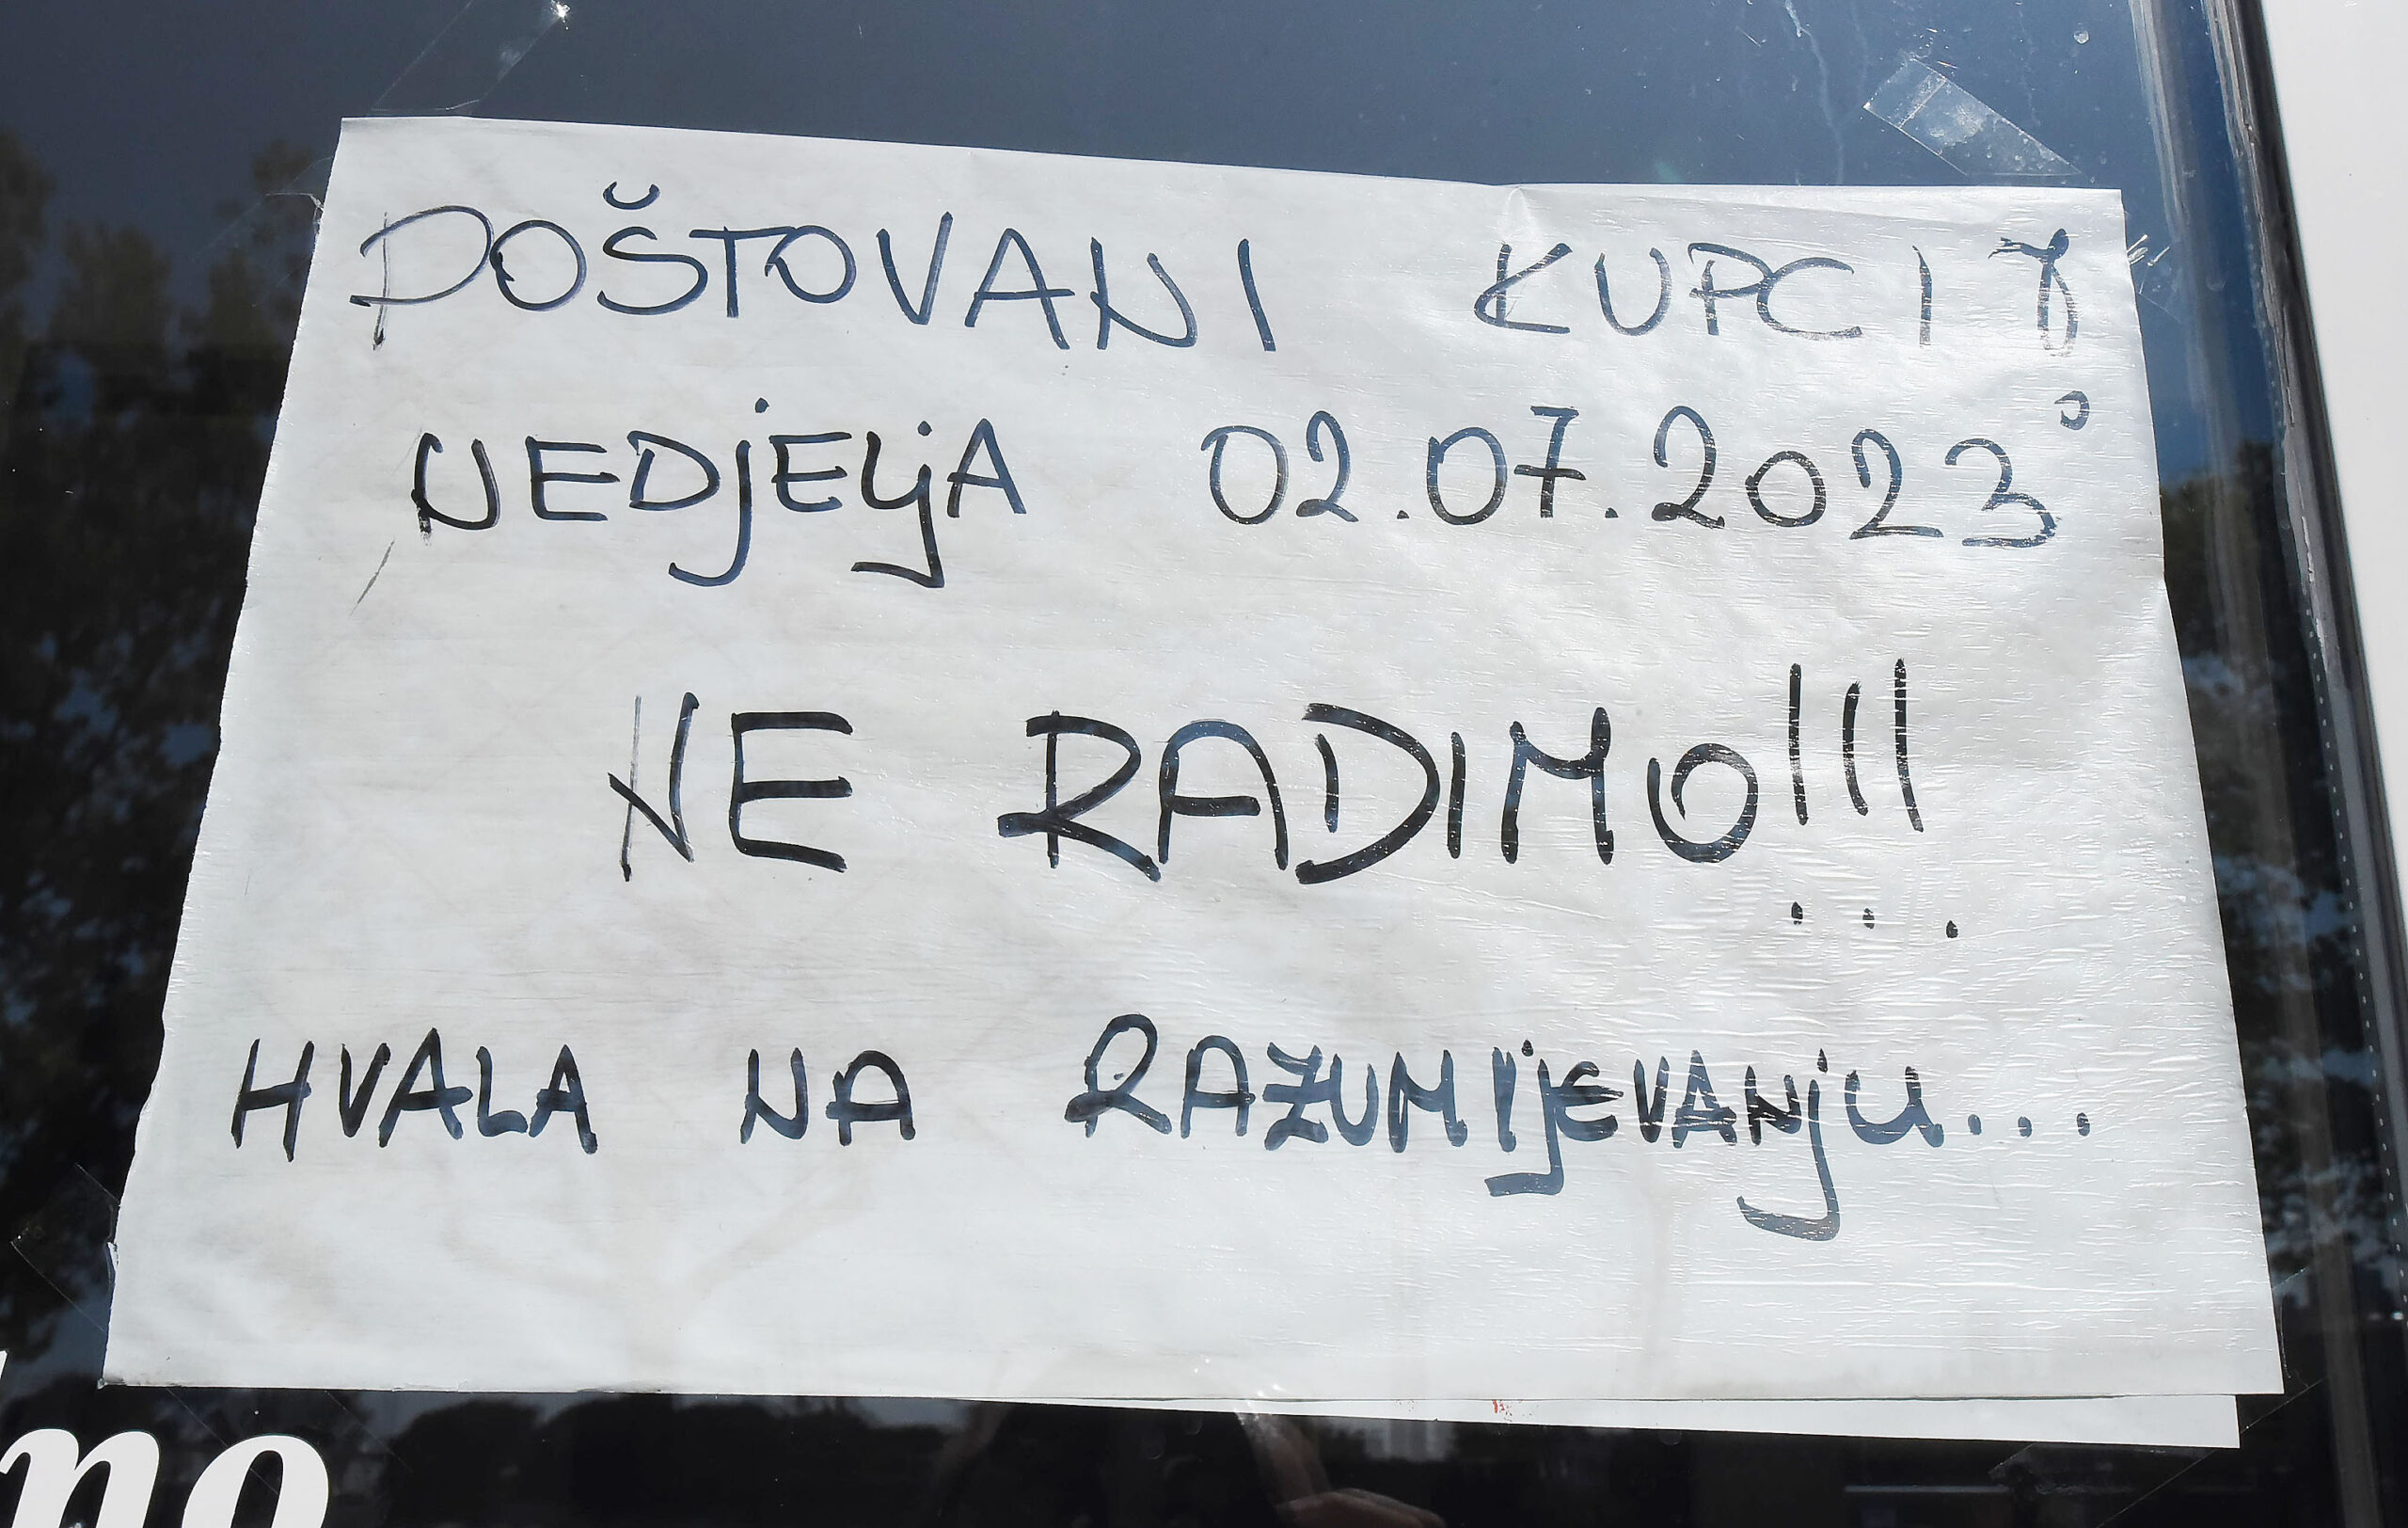 POŠTOVANI KUPCI
NEDjELjA 02.07.2023
NE RADIMO!!!
HVALA NA RAZUMIjEVANjU...
no